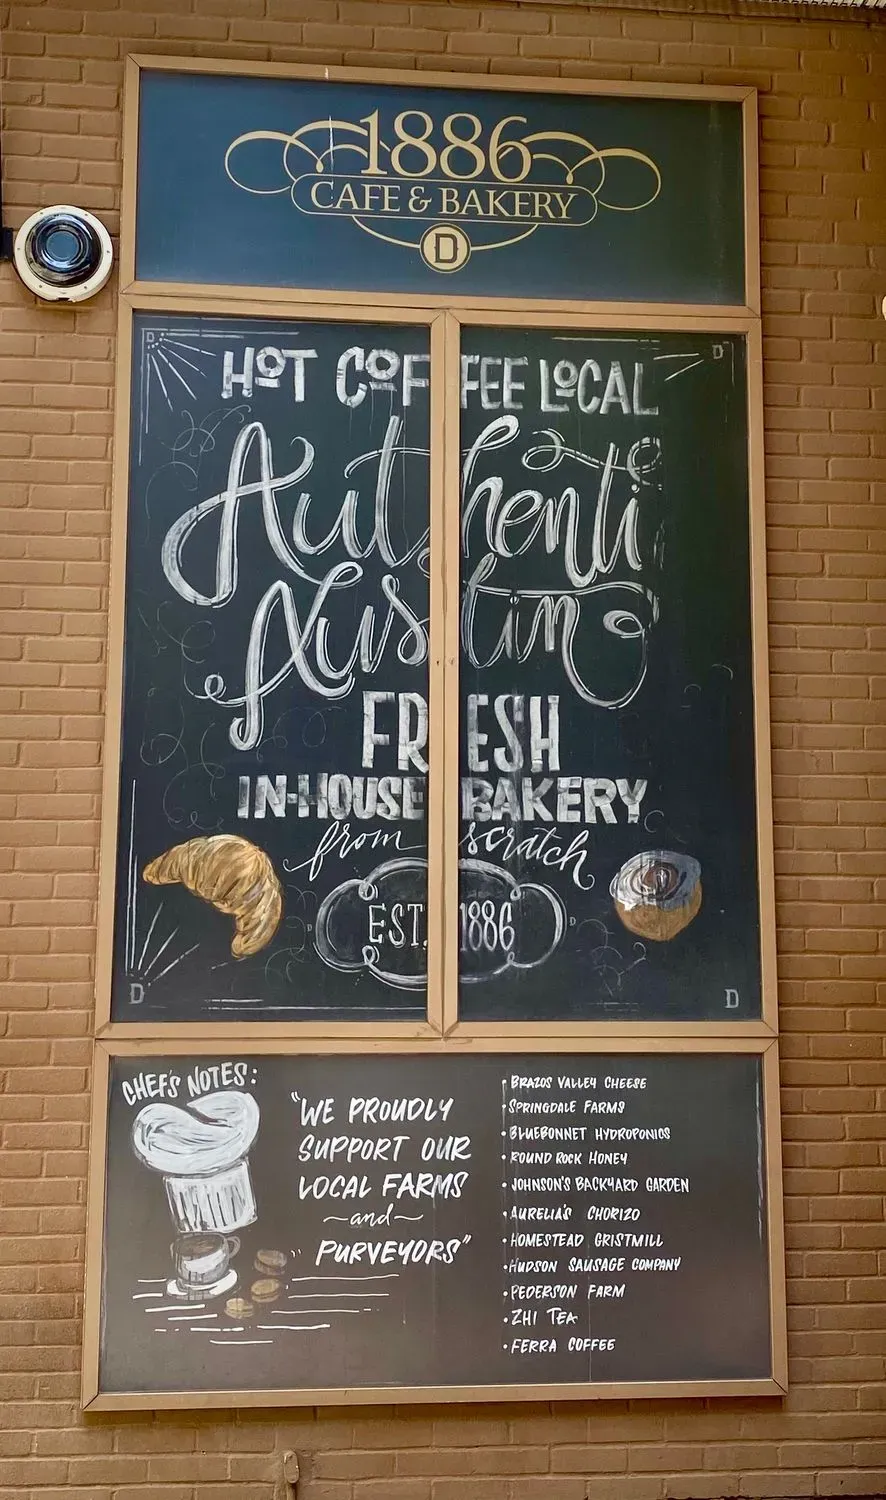 1886
CAFE & BAKERY
D
D D
HOT COFFEE LOCAL
Authenti
Austin
FRESH
IN-HOUSE BAKERY
from scratch
EST. 1886
D D
D D
CHEF'S NOTES:
"WE PROUDLY
SUPPORT OUR
LOCAL FARMS
~and~
PURVEYORS"
• BRAZOS VALLEY CHEESE
• SPRINGDALE FARMS
• BLUEBONNET HYDROPONICS
• ROUND ROCK HONEY
• JOHNSON'S BACKYARD GARDEN
• AURELIA'S CHORIZO
• HOMESTEAD GRISTMILL
• HUDSON SAUSAGE COMPANY
• PEDERSON FARM
• ZHI TEA
• FERRA COFFEE